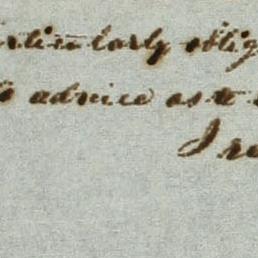 particularly oblig
advice as to
I re